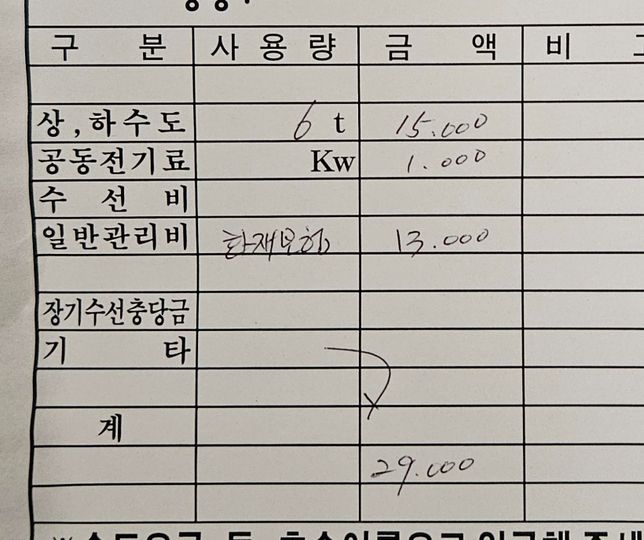 구 분 사 용 량 금 액 비
상,하수도 6 t 15.000
공동전기료 Kw 1.000
수 선 비
일반관리비 화재보험 13.000
장기수선충당금
기 타
계
29.000